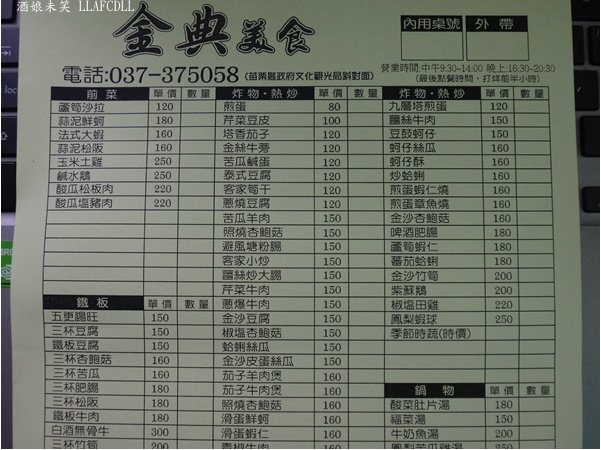 酒娘未笑 LLAFCDLL
金典美食
內用桌號 外帶
電話:037-375058(苗栗縣政府文化觀光局斜對面)
營業時間:中午9:30~14:00 晚上:16:30~20:30
(最後點餐時間,打烊前半小時)
前菜 單價 數量
蘆筍沙拉 120
蒜泥鮮蚵 180
法式大蝦 160
蒜泥松阪 160
玉米土雞 250
鹹水鵝 250
酸瓜松板肉 220
酸瓜塩豬肉 220
鐵板 單價 數量
五更腸旺 150
三杯豆腐 150
鐵板豆腐 150
三杯杏鮑菇 160
三杯苦瓜 160
三杯肥腸 180
三杯松阪 180
鐵板牛肉 180
白酒無骨牛 300
三杯竹筍 200
炸物·熱炒 單價 數量
煎蛋 80
芹菜豆皮 100
塔香茄子 120
金絲牛蒡 120
苦瓜鹹蛋 120
泰式豆腐 120
客家筍干 120
蔥燒豆腐 120
苦瓜羊肉 150
照燒杏鮑菇 150
避風塘粉腸 150
客家小炒 150
薑絲炒大腸 150
芹菜牛肉 150
蔥爆牛肉 150
金沙豆腐 150
椒塩杏鮑菇 150
蛤蜊絲瓜 150
金沙皮蛋絲瓜 150
茄子羊肉煲 160
茄子牛肉煲 160
照燒杏鮑菇 160
滑蛋鮮蚵 160
滑蛋蝦仁 160
青椒牛肉 160
炸物·熱炒 單價 數量
九層塔煎蛋 120
薑絲牛肉 150
豆鼓蚵仔 150
蚵仔絲瓜 160
蚵仔酥 160
炒蛤蜊 160
煎蛋蝦仁燒 160
煎蛋章魚燒 160
金沙杏鮑菇 160
啤酒肥腸 180
蘆筍蝦仁 180
蕃茄蛤蜊 180
金沙竹筍 200
紫蘇鵝 200
椒塩田雞 220
鳳梨蝦球 250
季節時蔬(時價)
鍋物 單價 數量
酸菜肚片湯 180
福菜湯 150
牛奶魚湯 200
鳳梨苦瓜雞湯 250